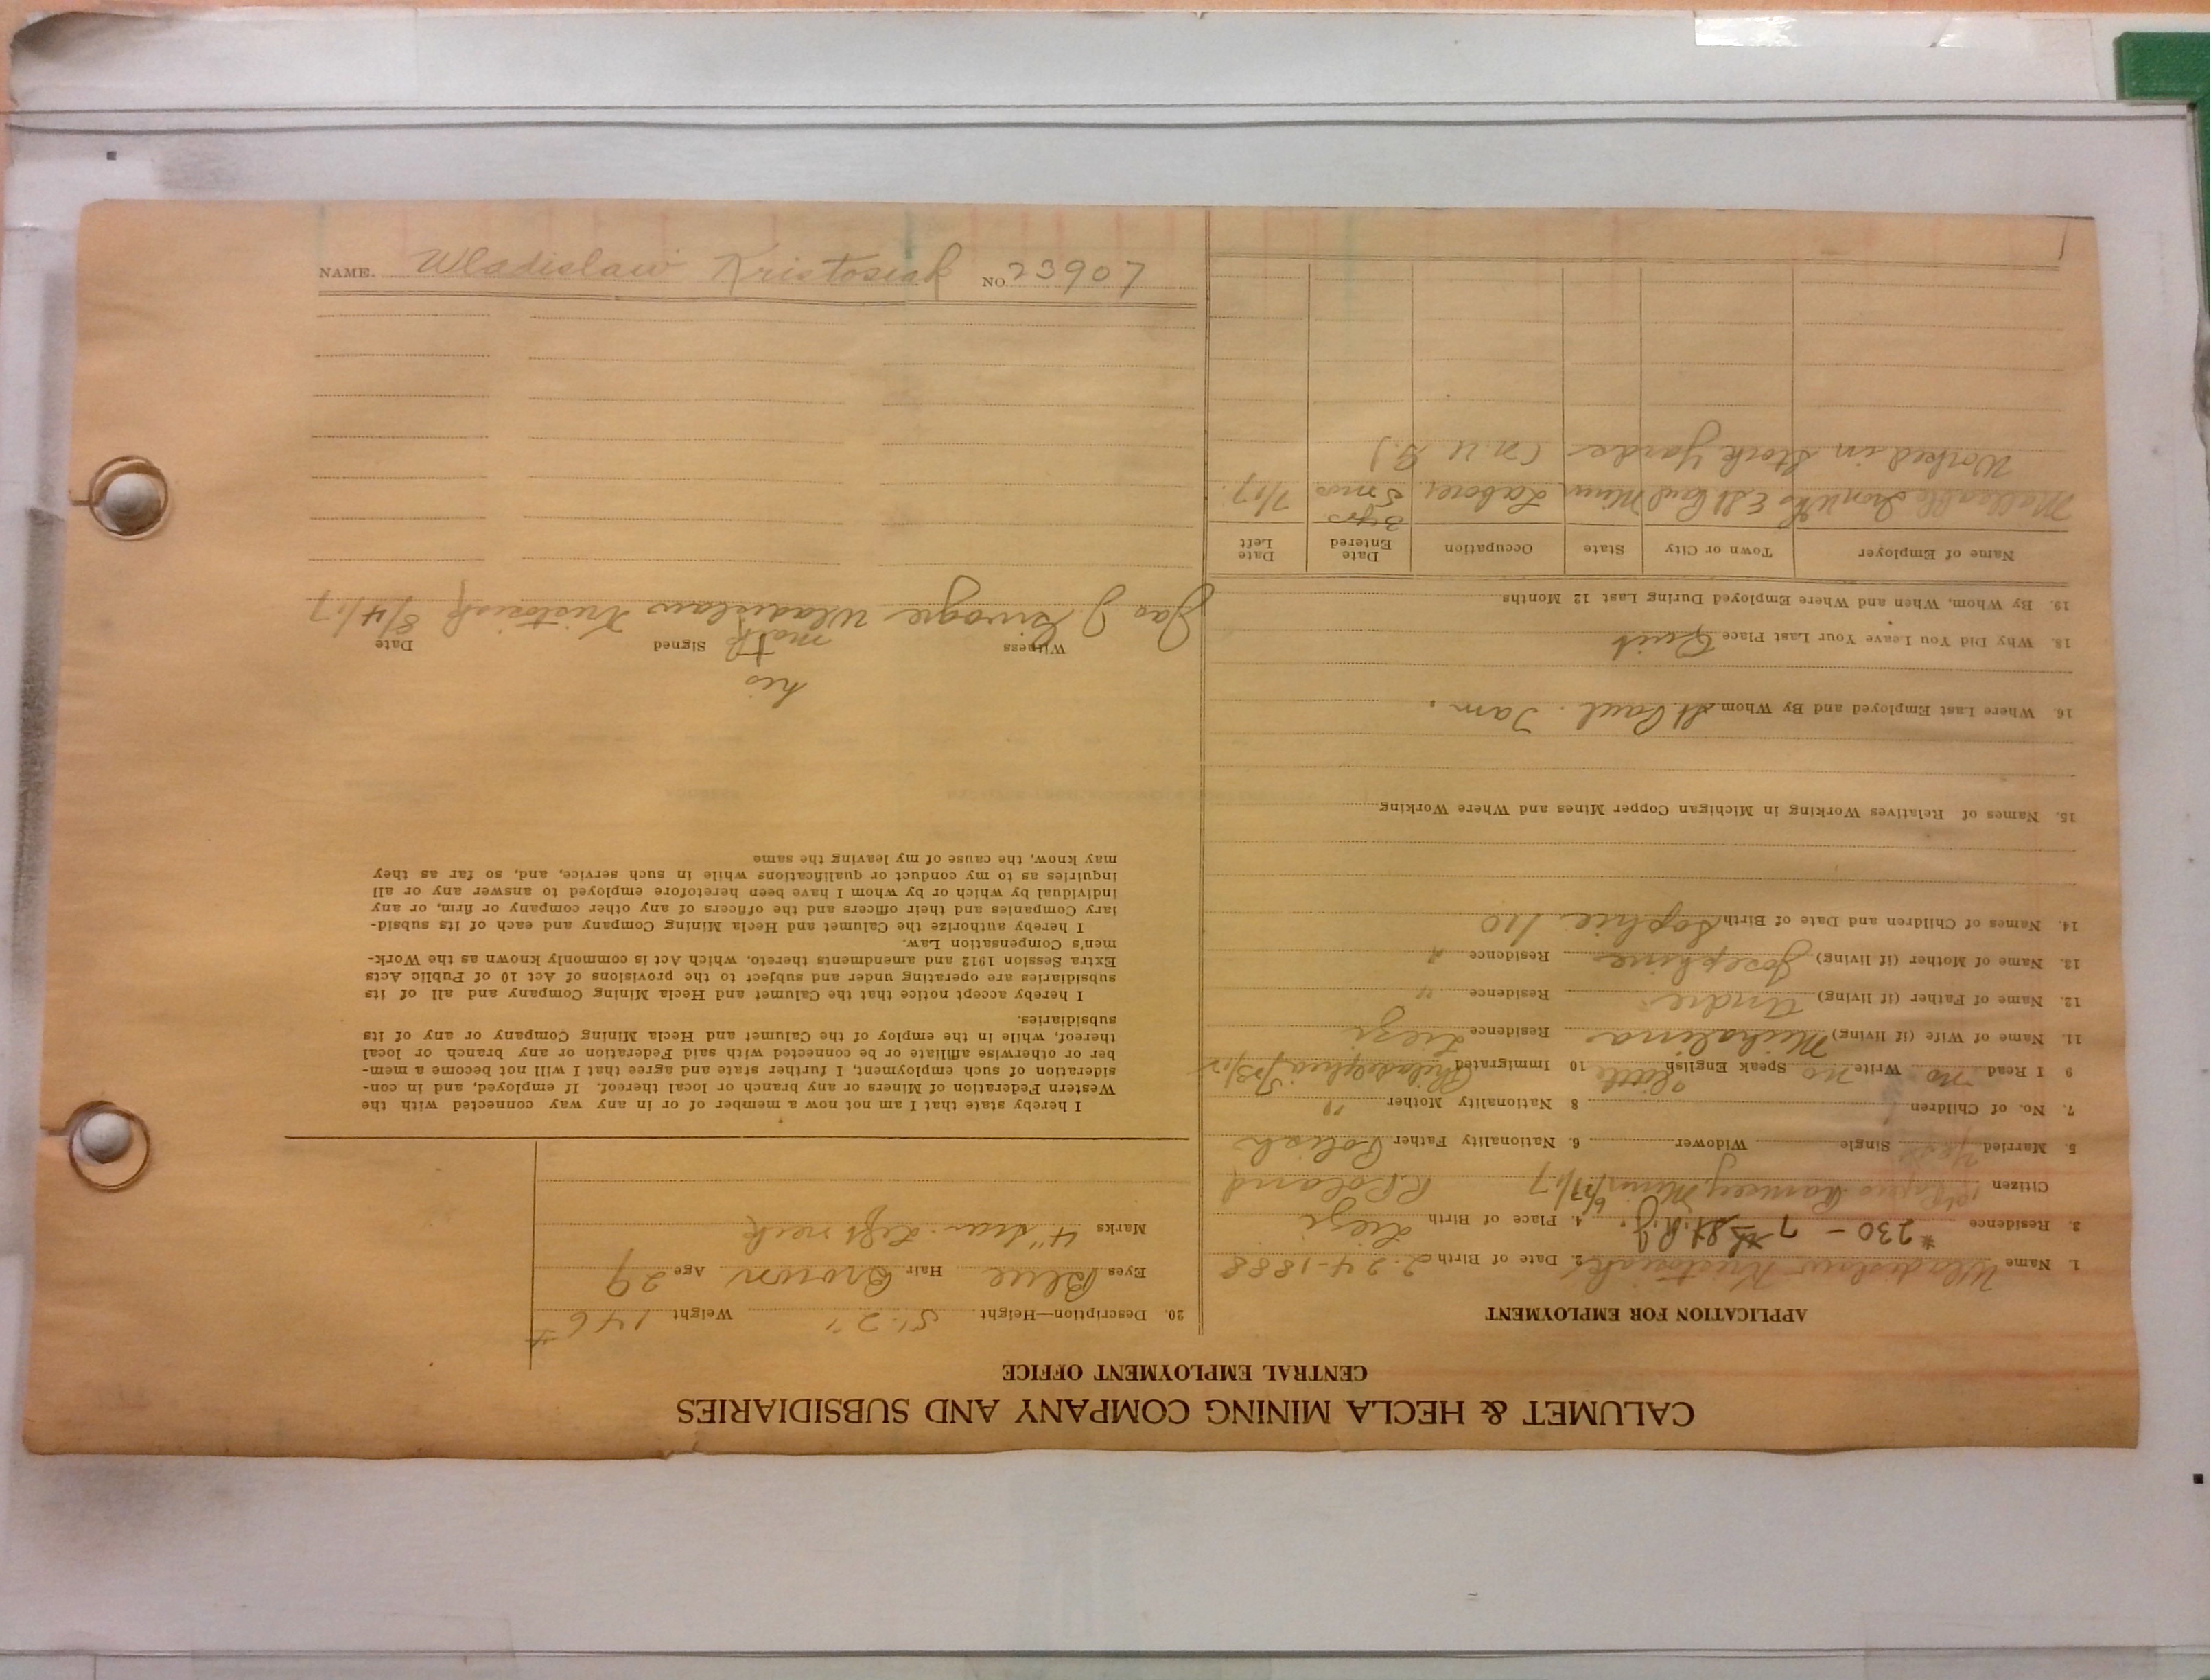 CALUMET & HECLA MINING COMPANY AND SUBSIDIARIES
CENTRAL EMPLOYMENT OFFICE
APPLICATION FOR EMPLOYMENT
1. Name Wladislaw Kristosiak 2. Date of Birth 2-24-1888
3. Residence #230 - 7th St. R.J. 4. Place of Birth Liezi
Citizen 1st Papers Ramsey, Minn 6/27/17 R. Poland
5. Married Yes Single Widower 6. Nationality Father Polish
7. No. of Children 1 8 Nationality Mother "
9 I Read no Write no Speak English little 10 Immigrated Philadelphia
11. Name of Wife (if living) Michalina Residence Liezi
12. Name of Father (if living) Andre Residence "
13. Name of Mother (if living) Josephine Residence "
14. Names of Children and Date of Birth Sophie 1/10
15. Names of Relatives Working in Michigan Copper Mines and Where Working
16. Where Last Employed and By Whom St Paul. Jam.
18. Why Did You Leave Your Last Place Quit
19. By Whom, When and Where Employed During Last 12 Months
Name of Employer Town or City State Occupation Date Entered Date Left
Malleable Iron Wks E St Paul Minn Laborer 3 yrs 5 mos 7/17.
Worked in Stock Yards (N.U.G.)
20. Description—Height 5'-2" Weight 146#
Eyes Blue Hair Brown Age 29
Marks 4" scar. Left neck
I hereby state that I am not now a member of or in any way connected with the
Western Federation of Miners or any branch or local thereof. If employed, and in con-
sideration of such employment, I further state and agree that I will not become a mem-
ber or otherwise affiliate or be connected with said Federation or any branch or local
thereof, while in the employ of the Calumet and Hecla Mining Company or any of its
subsidiaries.
I hereby accept notice that the Calumet and Hecla Mining Company and all of its
subsidiaries are operating under and subject to the provisions of Act 10 of Public Acts
Extra Session 1912 and amendments thereto, which Act is commonly known as the Work-
men's Compensation Law.
I hereby authorize the Calumet and Hecla Mining Company and each of its subsid-
iary Companies and their officers and the officers of any other company or firm, or any
individual by which or by whom I have been heretofore employed to answer any or all
inquiries as to my conduct or qualifications while in such service, and, so far as they
may know, the cause of my leaving the same
his
Witness + Signed Date
mark
Jas J Wladislaw Kristosiak 8/4/17
NAME. Wladislaw Kristosiak NO. 23907